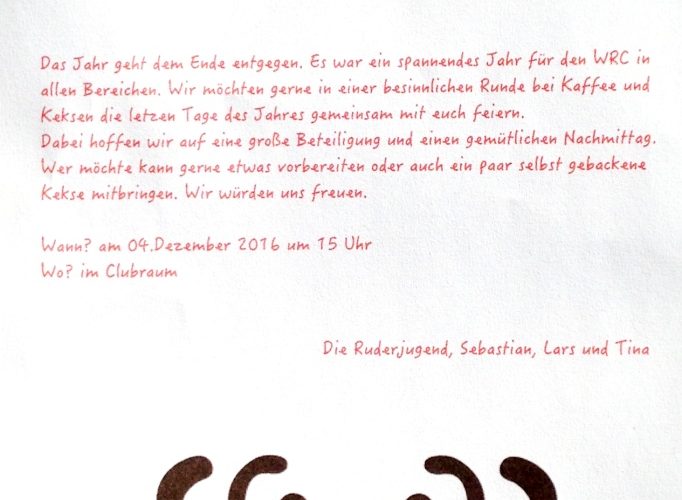 Das Jahr geht dem Ende entgegen. Es war ein spannendes Jahr für den WRC in
allen Bereichen. Wir möchten gerne in einer besinnlichen Runde bei Kaffee und
Keksen die letzen Tage des Jahres gemeinsam mit euch feiern.
Dabei hoffen wir auf eine große Beteiligung und einen gemütlichen Nachmittag.
Wer möchte kann gerne etwas vorbereiten oder auch ein paar selbst gebackene
Kekse mitbringen. Wir würden uns freuen.
Wann? am 04.Dezember 2016 um 15 Uhr
Wo? im Clubraum
Die Ruderjugend, Sebastian, Lars und Tina